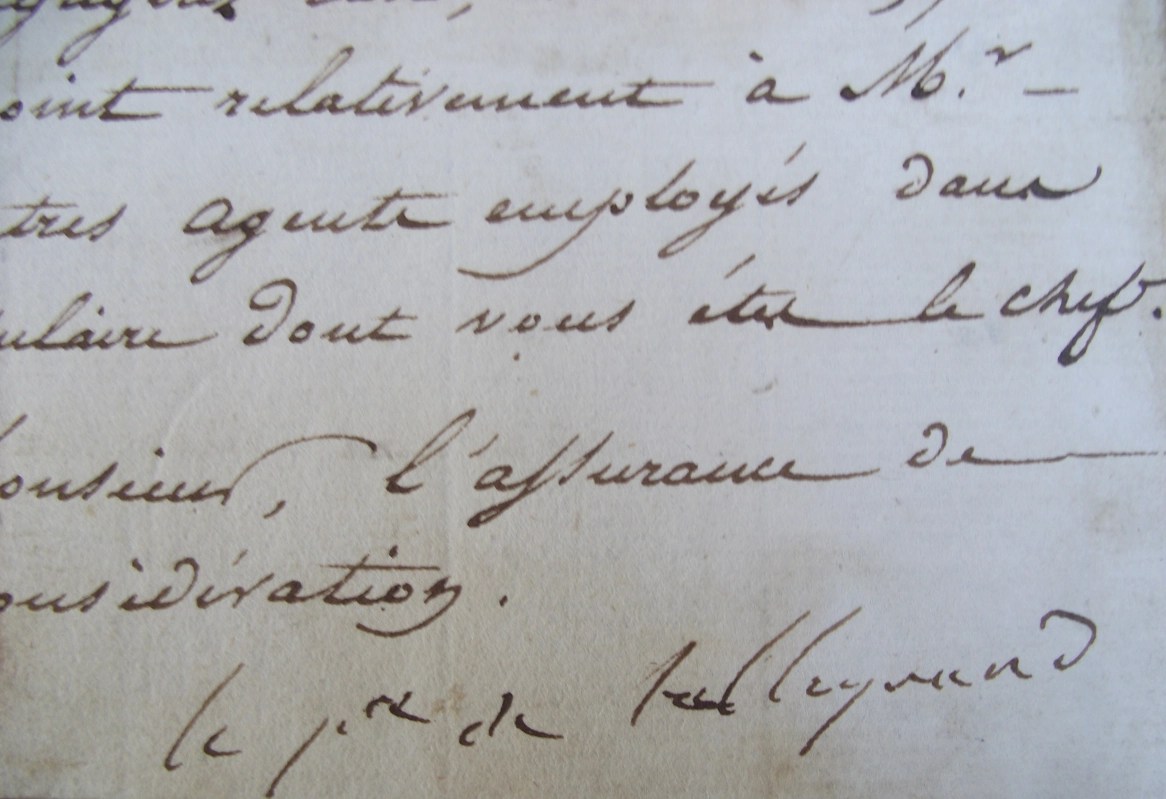 oint relativement à M.r –
tres agents employés dans
ulaire dont vous êtes le chef.
onsieur, l'assurance de
onsidération.
le p.ce de talleyrand